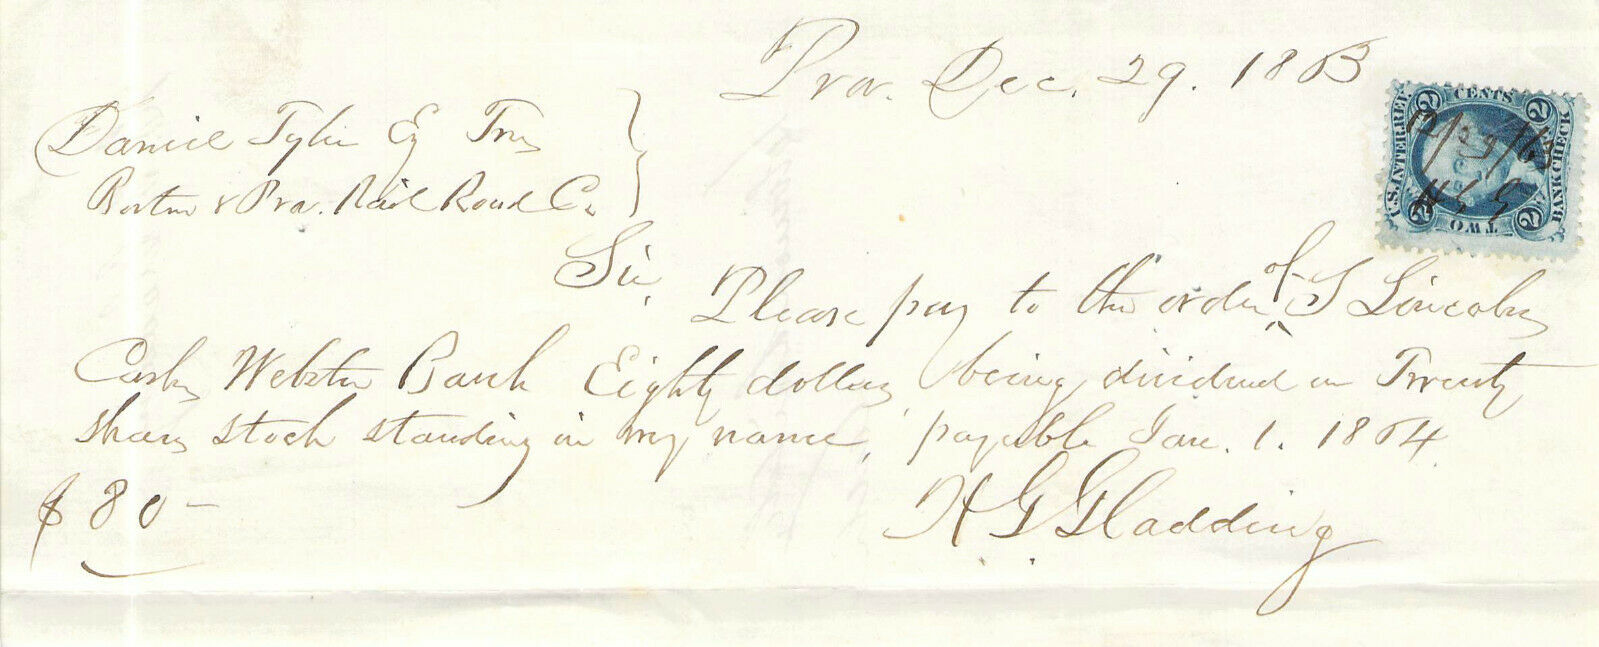 Prov. Dec. 29. 1863
Daniel Tyler Esq Trs
Boston & Prov. Rail Road Co.
Sir,
Please pay to the order of S Lincoln
Cash. Webster Bank Eighty dollars being dividend on Twenty
shares stock standing in my name, payable Jan. 1. 1864.
$80-
H G Gladding
U.S. INTER. REV.
2 CENTS 2
BANK CHECK
2 TWO 2
12/29/63
H G G